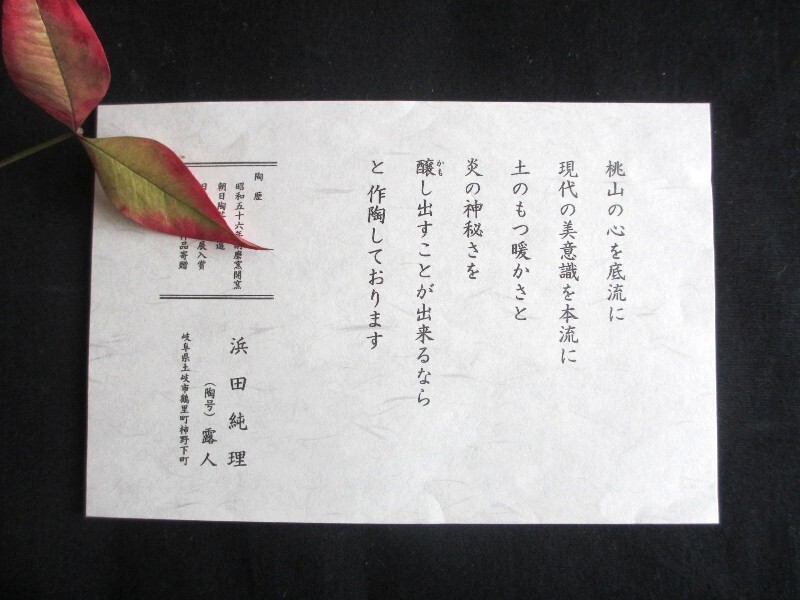 桃山の心を底流に
現代の美意識を本流に
土のもつ暖かさと
炎の神秘さを
醸し出すことが出来るなら
かも
と作陶しております
陶歴
昭和五十六年 磨窯開窯
朝日陶 選
日 展入賞
品寄贈
浜田純理
(陶号) 露人
岐阜県土岐市鶴里町柿野下町